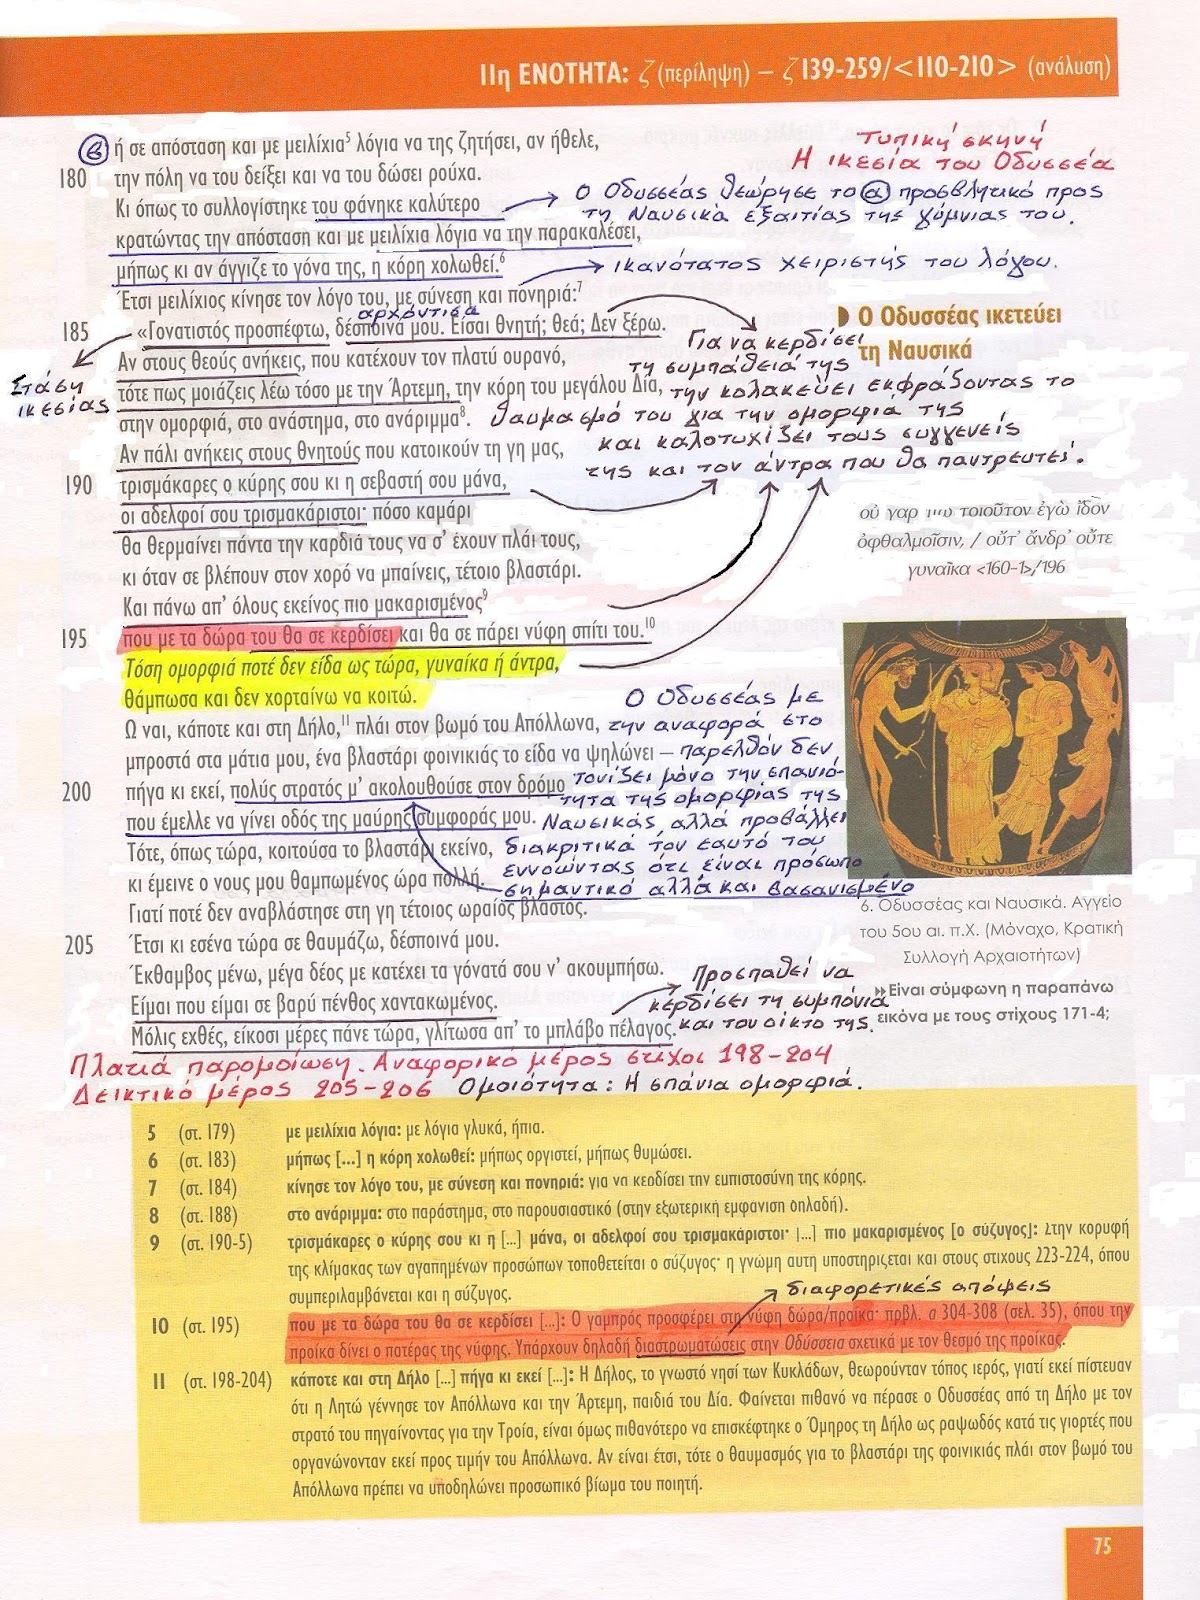 11η ΕΝΟΤΗΤΑ: ζ (περίληψη) – ζ 139-259/<110-210> (ανάλυση)
τυπική σκηνή
Η ικεσία του Οδυσσέα
β ή σε απόσταση και με μειλίχια⁵ λόγια να της ζητήσει, αν ήθελε,
180 την πόλη να του δείξει και να του δώσει ρούχα.
Κι όπως το συλλογίστηκε του φάνηκε καλύτερο
κρατώντας την απόσταση και με μειλίχια λόγια να την παρακαλέσει,
μήπως κι αν άγγιζε το γόνα της, η κόρη χολωθεί.⁶
Έτσι μειλίχιος κίνησε τον λόγο του, με σύνεση και πονηριά:⁷
Ο Οδυσσέας θεώρησε το α προσβλητικό προς
τη Ναυσικά εξαιτίας της γύμνιας του.
ικανότατος χειριστής του λόγου.
αρχόντισα
185 «Γονατιστός προσπέφτω, δέσποινά μου. Είσαι θνητή; θεά; Δεν ξέρω.
Αν στους θεούς ανήκεις, που κατέχουν τον πλατύ ουρανό,
τότε πως μοιάζεις λέω τόσο με την Άρτεμη, την κόρη του μεγάλου Δία,
στην ομορφιά, στο ανάστημα, στο ανάριμμα⁸.
Αν πάλι ανήκεις στους θνητούς που κατοικούν τη γη μας,
190 τρισμάκαρες ο κύρης σου κι η σεβαστή σου μάνα,
οι αδελφοί σου τρισμακάριστοι· πόσο καμάρι
θα θερμαίνει πάντα την καρδιά τους να σ' έχουν πλάι τους,
κι όταν σε βλέπουν στον χορό να μπαίνεις, τέτοιο βλαστάρι.
Και πάνω απ' όλους εκείνος πιο μακαρισμένος⁹
195 που με τα δώρα του θα σε κερδίσει και θα σε πάρει νύφη σπίτι του.¹⁰
Τόση ομορφιά ποτέ δεν είδα ως τώρα, γυναίκα ή άντρα,
θάμπωσα και δεν χορταίνω να κοιτώ.
Ω ναι, κάποτε και στη Δήλο,¹¹ πλάι στον βωμό του Απόλλωνα,
μπροστά στα μάτια μου, ένα βλαστάρι φοινικιάς το είδα να ψηλώνει –
200 πήγα κι εκεί, πολύς στρατός μ' ακολουθούσε στον δρόμο
που έμελλε να γίνει οδός της μαύρης συμφοράς μου.
Τότε, όπως τώρα, κοιτούσα το βλαστάρι εκείνο,
κι έμεινε ο νους μου θαμπωμένος ώρα πολλή.
Γιατί ποτέ δεν αναβλάστησε στη γη τέτοιος ωραίος βλαστός.
205 Έτσι κι εσένα τώρα σε θαυμάζω, δέσποινά μου.
Έκθαμβος μένω, μέγα δέος με κατέχει τα γόνατά σου ν' ακουμπήσω.
Είμαι που είμαι σε βαρύ πένθος χαντακωμένος.
Μόλις εχθές, είκοσι μέρες πάνε τώρα, γλίτωσα απ' το μπλάβο πέλαγος.
Στάση
ικεσίας
Ο Οδυσσέας ικετεύει
τη Ναυσικά
Για να κερδίσει
τη συμπάθειά της
την κολακεύει εκφράζοντας το
θαυμασμό του για την ομορφιά της
και καλοτυχίζει τους συγγενείς
της και τον άντρα που θα παντρευτεί.
οὐ γαρ τοιοῦτον ἐγὼ ἴδον
ὀφθαλμοῖσιν, / οὔτ' ἄνδρ' οὔτε
γυναῖκα <160-1>/196
Ο Οδυσσέας με
την αναφορά στο
παρελθόν δεν
τονίζει μόνο την σπανιό-
τητα της ομορφιάς της
Ναυσικάς, αλλά προβάλλει
διακριτικά τον εαυτό του
εννοώντας ότι είναι πρόσωπο
σημαντικό αλλά και βασανισμένο
6. Οδυσσέας και Ναυσικά. Αγγείο
του 5ου αι. π.Χ. (Μόναχο, Κρατική
Συλλογή Αρχαιοτήτων)
Είναι σύμφωνη η παραπάνω
εικόνα με τους στίχους 171-4;
Προσπαθεί να
κερδίσει τη συμπόνια
και τον οίκτο της.
Πλατιά παρομοίωση. Αναφορικό μέρος στίχοι 198-204
Δεικτικό μέρος 205-206 Ομοιότητα: Η σπάνια ομορφιά.
5 (στ. 179) με μειλίχια λόγια: με λόγια γλυκά, ήπια.
6 (στ. 183) μήπως [...] η κόρη χολωθεί: μήπως οργιστεί, μήπως θυμώσει.
7 (στ. 184) κίνησε τον λόγο του, με σύνεση και πονηριά: για να κερδίσει την εμπιστοσύνη της κόρης.
8 (στ. 188) στο ανάριμμα: στο παράστημα, στο παρουσιαστικό (στην εξωτερική εμφάνιση δηλαδή).
9 (στ. 190-5) τρισμάκαρες ο κύρης σου κι η [...] μάνα, οι αδελφοί σου τρισμακάριστοι· [...] πιο μακαρισμένος [ο σύζυγος]: Στην κορυφή
της κλίμακας των αγαπημένων προσώπων τοποθετείται ο σύζυγος· η γνώμη αυτή υποστηρίζεται και στους στίχους 223-224, όπου
συμπεριλαμβάνεται και η σύζυγος.
διαφορετικές απόψεις
10 (στ. 195) που με τα δώρα του θα σε κερδίσει [...]: Ο γαμπρός προσφέρει στη νύφη δώρα/προίκα· πρβλ. α 304-308 (σελ. 35), όπου την
προίκα δίνει ο πατέρας της νύφης. Υπάρχουν δηλαδή διαστρωματώσεις στην Οδύσσεια σχετικά με τον θεσμό της προίκας.
11 (στ. 198-204) κάποτε και στη Δήλο [...] πήγα κι εκεί [...]: Η Δήλος, το γνωστό νησί των Κυκλάδων, θεωρούνταν τόπος ιερός, γιατί εκεί πίστευαν
ότι η Λητώ γέννησε τον Απόλλωνα και την Άρτεμη, παιδιά του Δία. Φαίνεται πιθανό να πέρασε ο Οδυσσέας από τη Δήλο με τον
στρατό του πηγαίνοντας για την Τροία, είναι όμως πιθανότερο να επισκέφτηκε ο Όμηρος τη Δήλο ως ραψωδός κατά τις γιορτές που
οργανώνονταν εκεί προς τιμήν του Απόλλωνα. Αν είναι έτσι, τότε ο θαυμασμός για το βλαστάρι της φοινικιάς πλάι στον βωμό του
Απόλλωνα πρέπει να υποδηλώνει προσωπικό βίωμα του ποιητή.
75